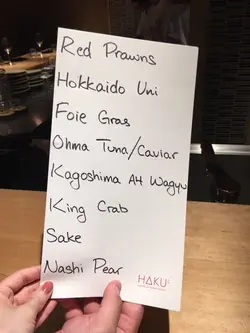 Red Prawns
Hokkaido Uni
Foie Gras
Ohma Tuna/Caviar
Kagoshima A4 Wagyu
King Crab
Sake
Nashi Pear
HAKU